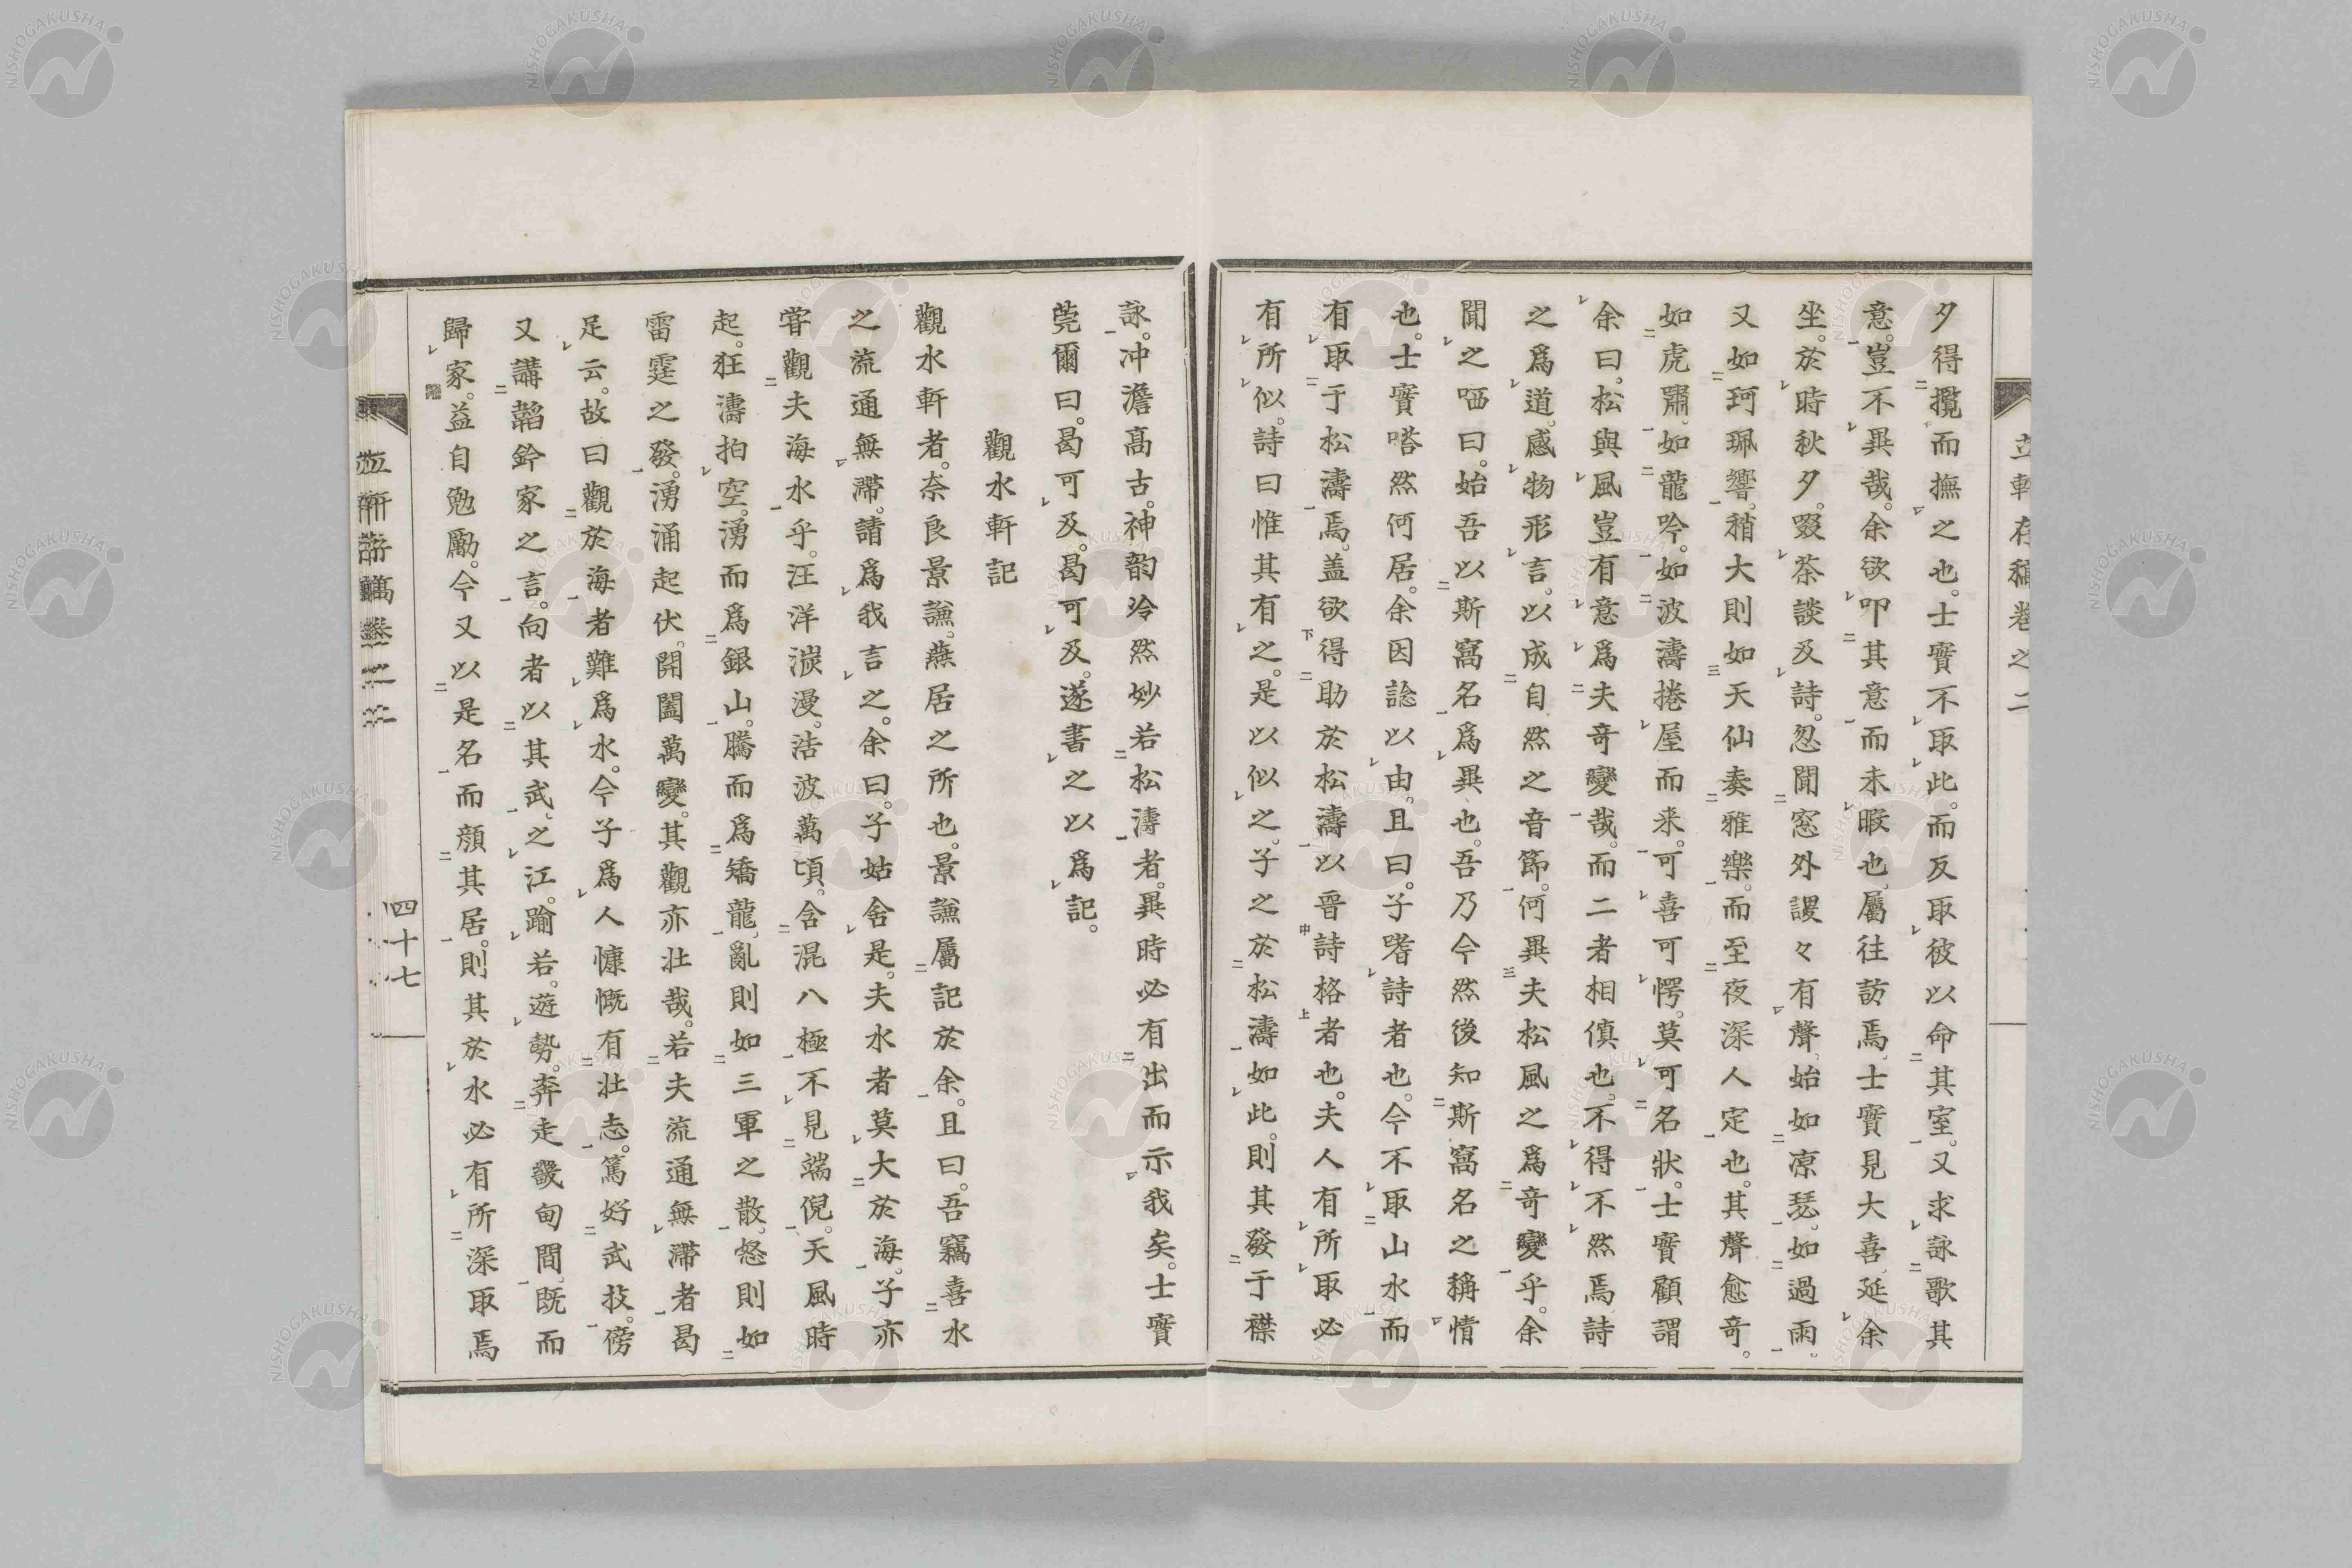 夕得攬而撫之也。士實不取此。而反取彼以命其室。又求詠歌其
意。豈不異哉。余欲叩其意而未暇也、屬往訪焉、士實見大喜、延余
坐。於時秋夕。啜茶談及詩。忽聞窓外謖々有聲、始如凉瑟、如過雨。
又如珂珮響、稍大則如天仙奏雅樂。而至夜深人定也。其聲愈奇。
如虎嘯、如龍吟。如波濤捲屋而来。可喜可愕。莫可名狀。士實顧謂
余曰。松與風豈有意爲夫奇變哉。而二者相傎也。不得不然焉、詩
之爲道。感物形言、以成自然之音節。何異夫松風之爲奇變乎。余
聞之哂曰。始吾以斯窩名爲異也。吾乃今然後知斯窩名之稱情
也。士實嗒然何居。余因諗以由。且曰。子嗜詩者也。今不取山水而
有取于松濤焉。蓋欲得助於松濤以晉詩格者也。夫人有所取必
有所似。詩曰惟其有之。是以似之。子之於松濤如此。則其發于襟
詠。冲澹高古。神韵泠然妙若松濤者。異時必有出而示我矣。士實
莞爾曰。曷可及。曷可及。遂書之以爲記。
觀水軒記
觀水軒者。奈良景謙。燕居之所也。景謙屬記於余。且曰。吾竊喜水
之流通無滯。請爲我言之。余曰。子姑舍是。夫水者莫大於海。子亦
甞觀夫海水乎。汪洋淡漫。浩波萬頃。含混八極不見端倪。天風時
起。狂濤拍空。湧而爲銀山。騰而爲矯龍。亂則如三軍之散、怒則如
雷霆之發。湧涌起伏。開闔萬變。其觀亦壯哉。若夫流通無滯者曷
足云。故曰觀於海者難爲水。今子爲人慷慨有壯志。篤好武技。傍
又講韜鈐家之言。向者以其武、之江。踰若。遊勢。奔走畿甸間、既而
歸家。益自勉勵。今又以是名而顔其居。則其於水必有所深取焉
立軒存稿卷之二
四十七